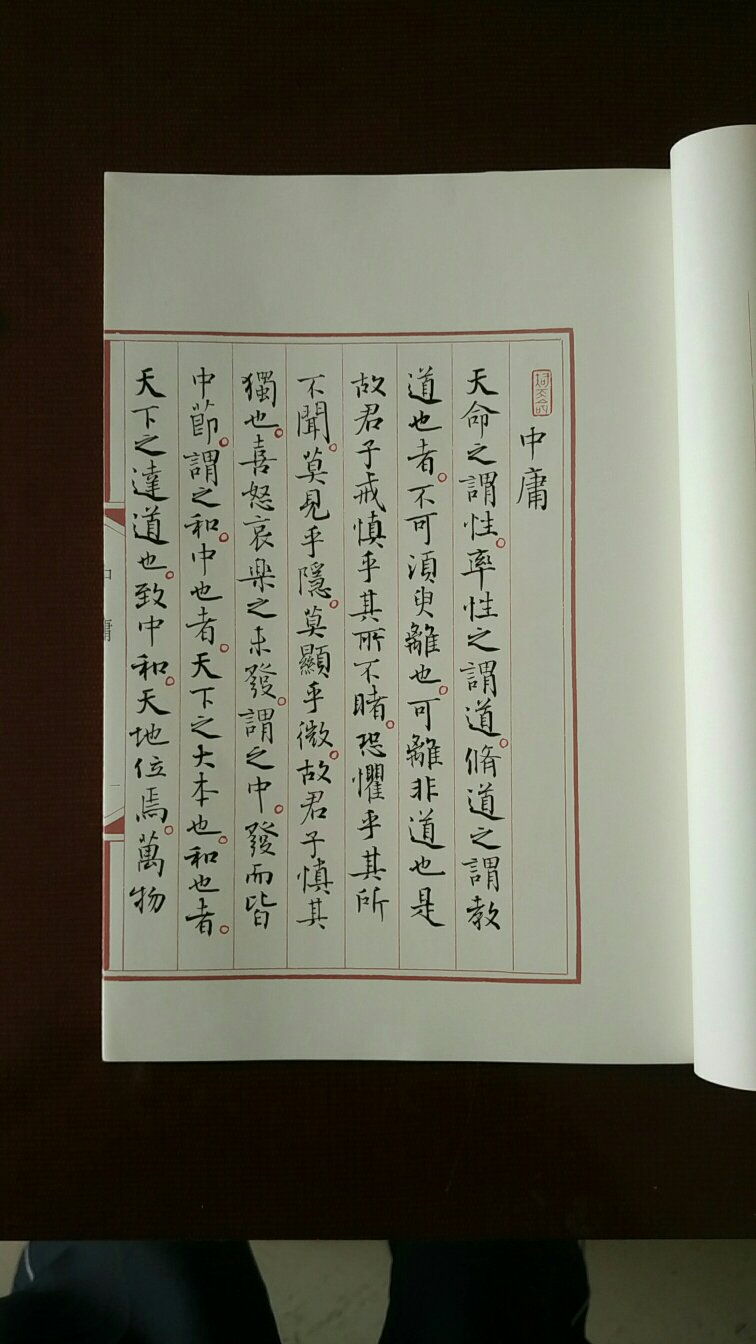 中庸
天命之謂性。率性之謂道。脩道之謂教
道也者。不可須臾離也。可離非道也是
故君子戒慎乎其所不睹。恐懼乎其所
不聞。莫見乎隱。莫顯乎微。故君子慎其
獨也。喜怒哀樂之未發。謂之中。發而皆
中節。謂之和。中也者。天下之大本也。和也者。
天下之達道也。致中和。天地位焉。萬物
中庸
一